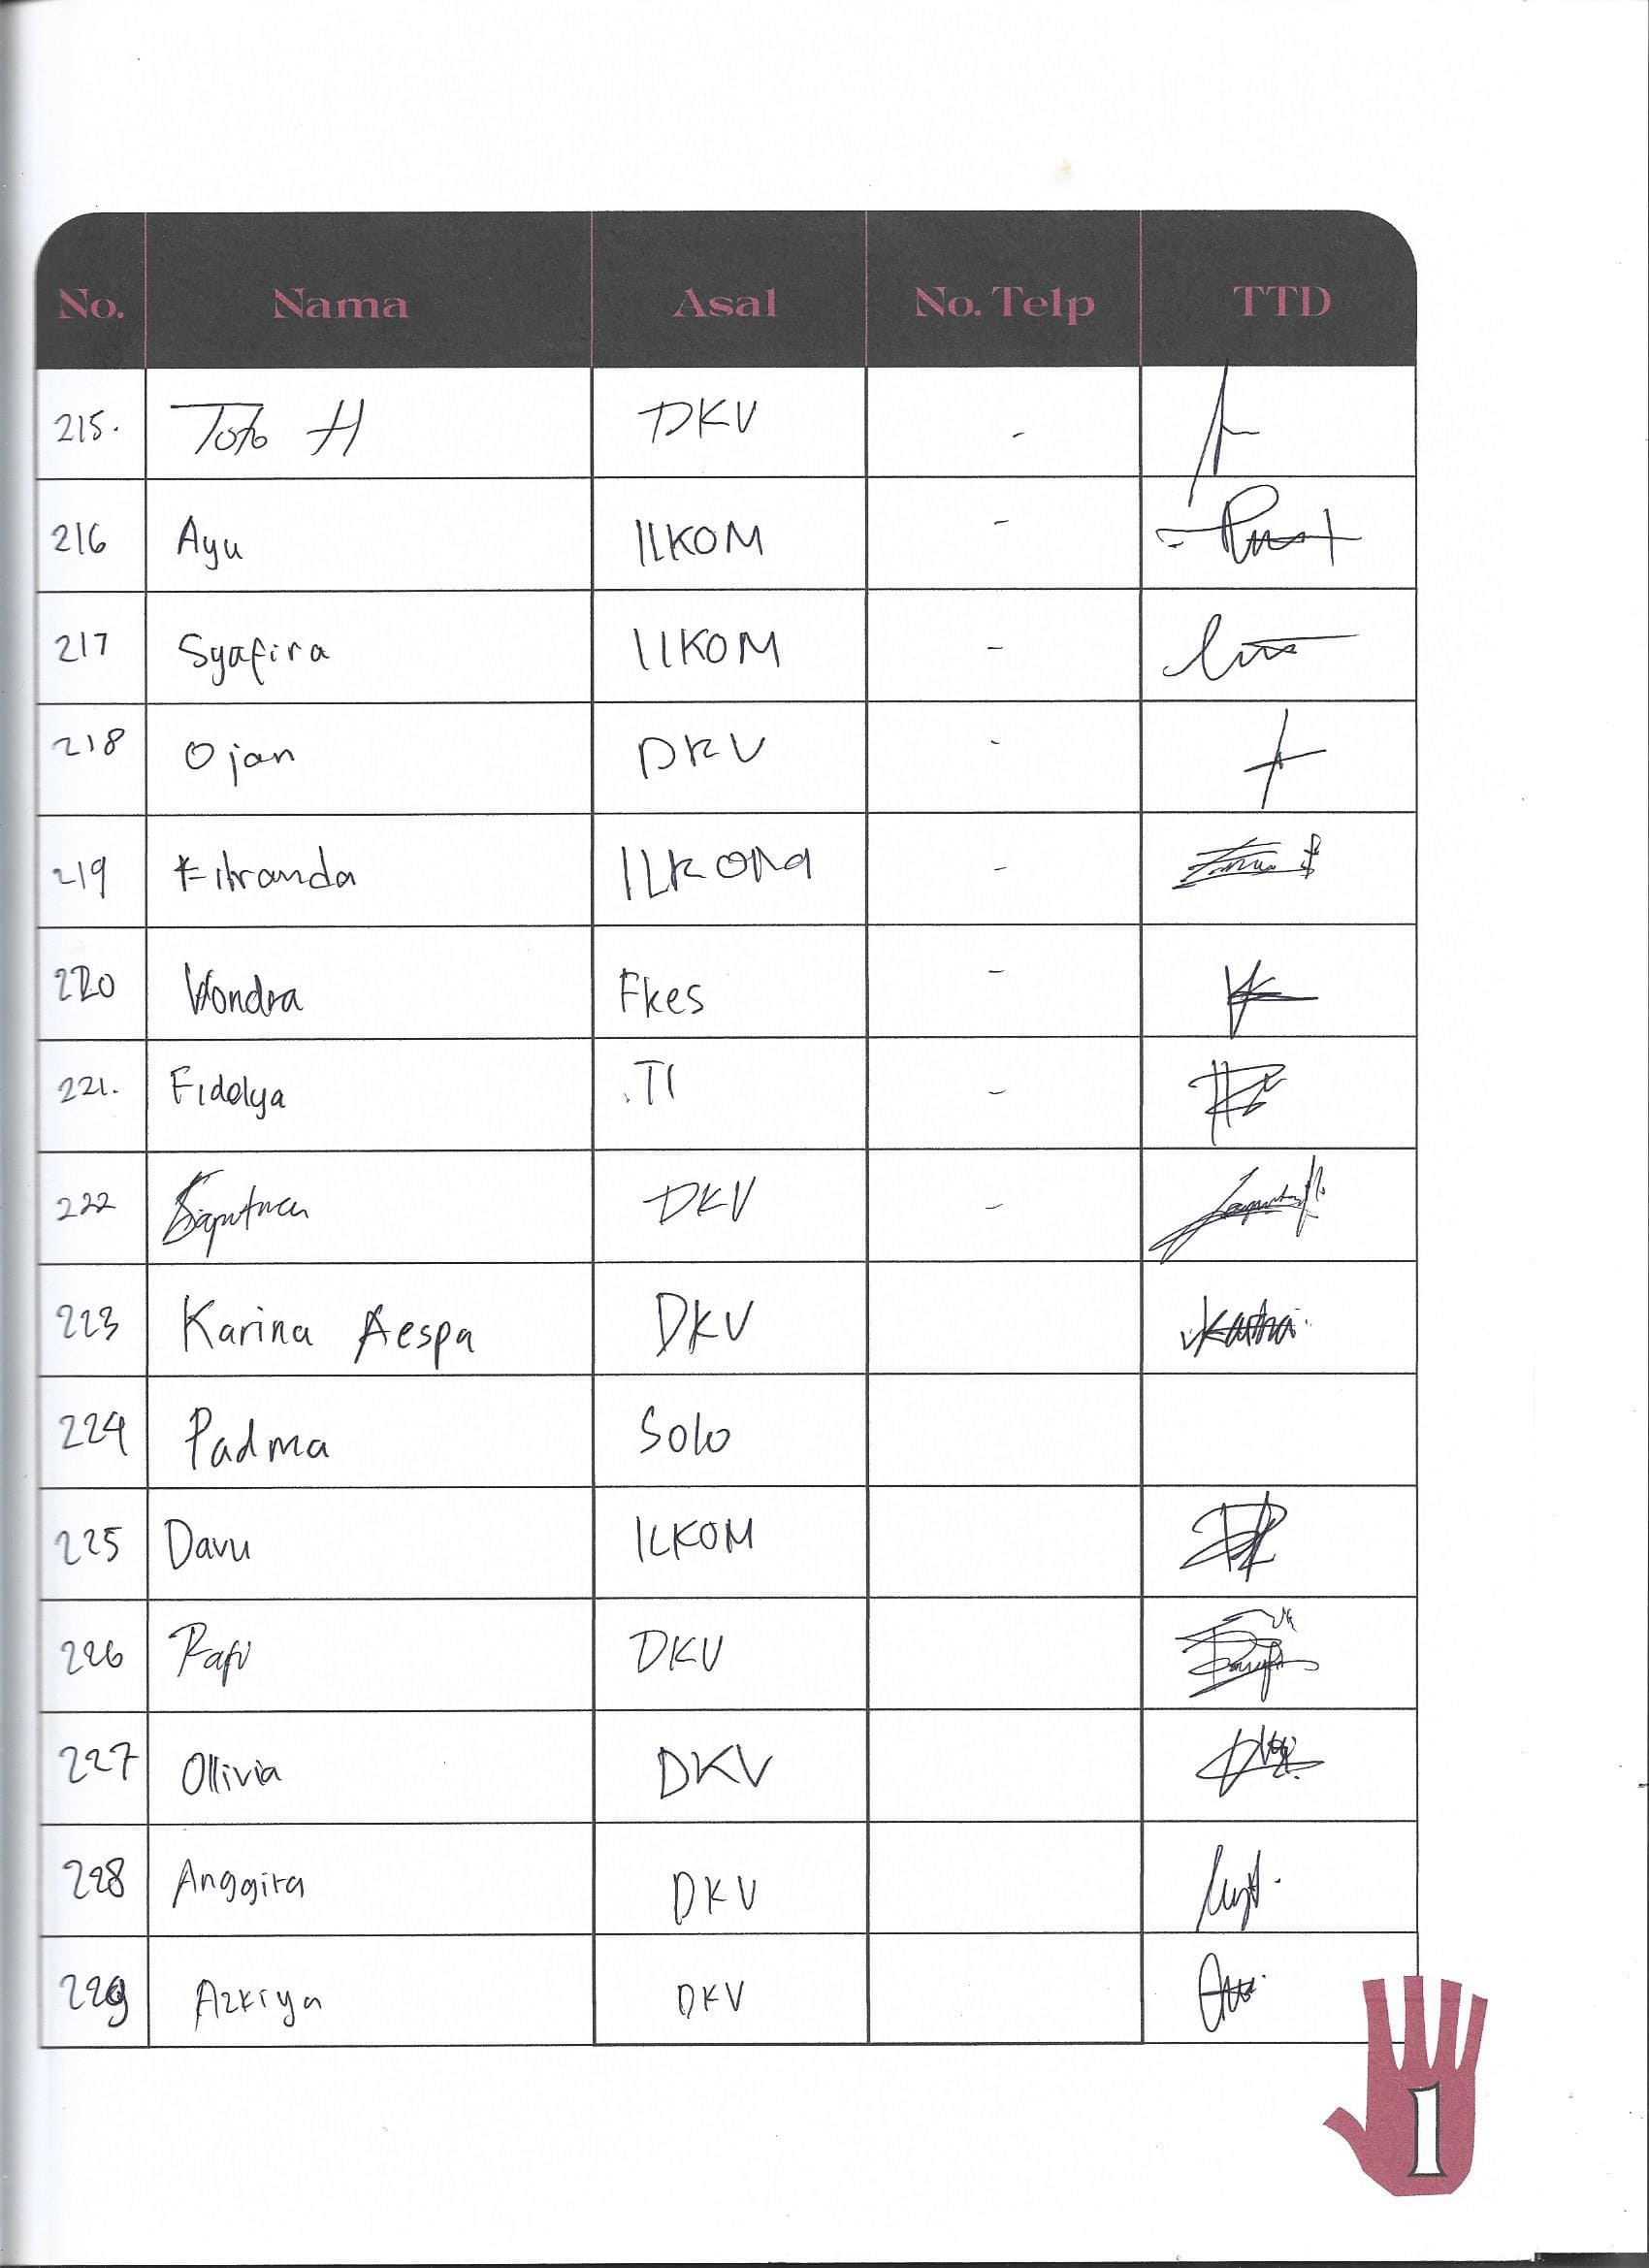 No. Nama Asal No. Telp TTD
215. Toto H DKV -
216 Ayu ILKOM -
217 Syafira IIKOM -
218 Ojan DKV -
219 ILKOM -
220 Vondra Fkes -
221. Fidelya .TI -
222 Saputra DKV -
223 Karina Aespa DKV
224 Padma Solo
225 Davu ILKOM
226 Rafi DKV
227 Ollivia DKV
228 Anggita DKV
229 Azkiya DKV
1